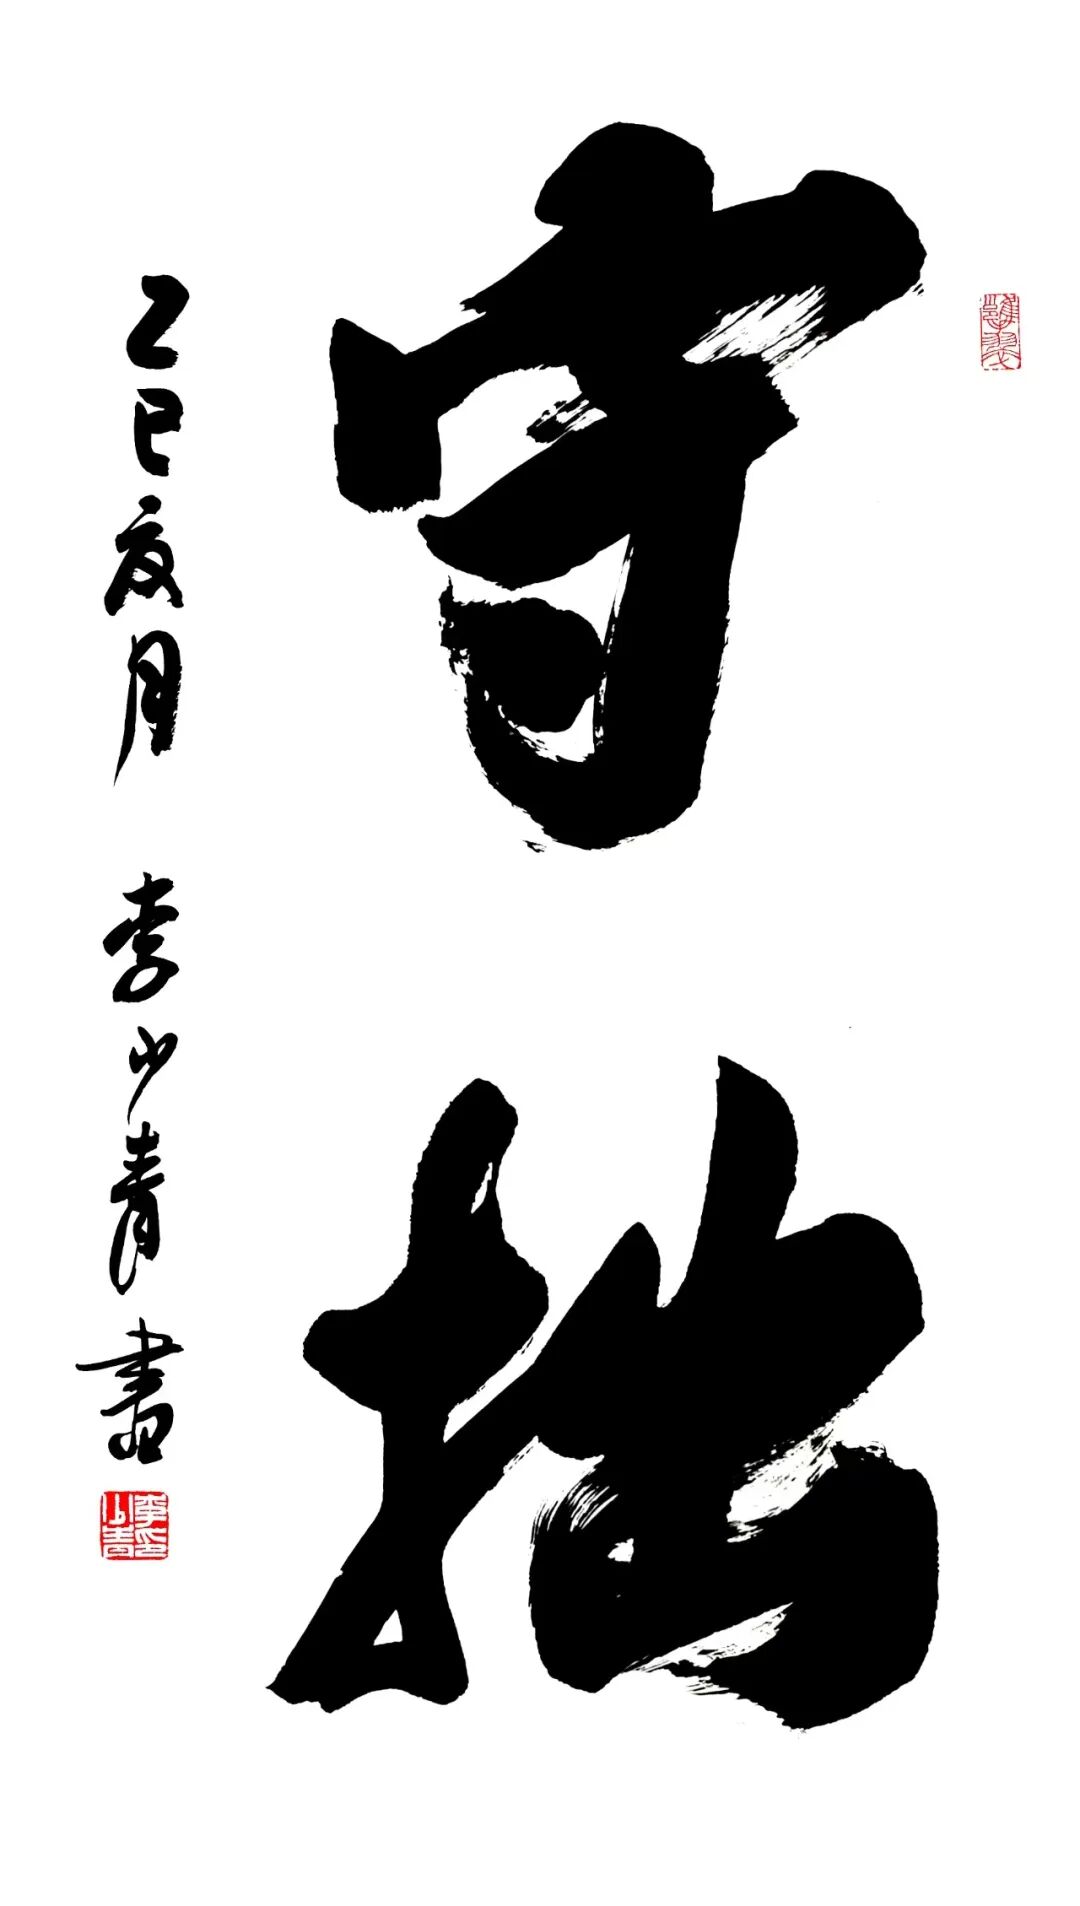 守拙
乙巳夏月 李少青書
李少青印